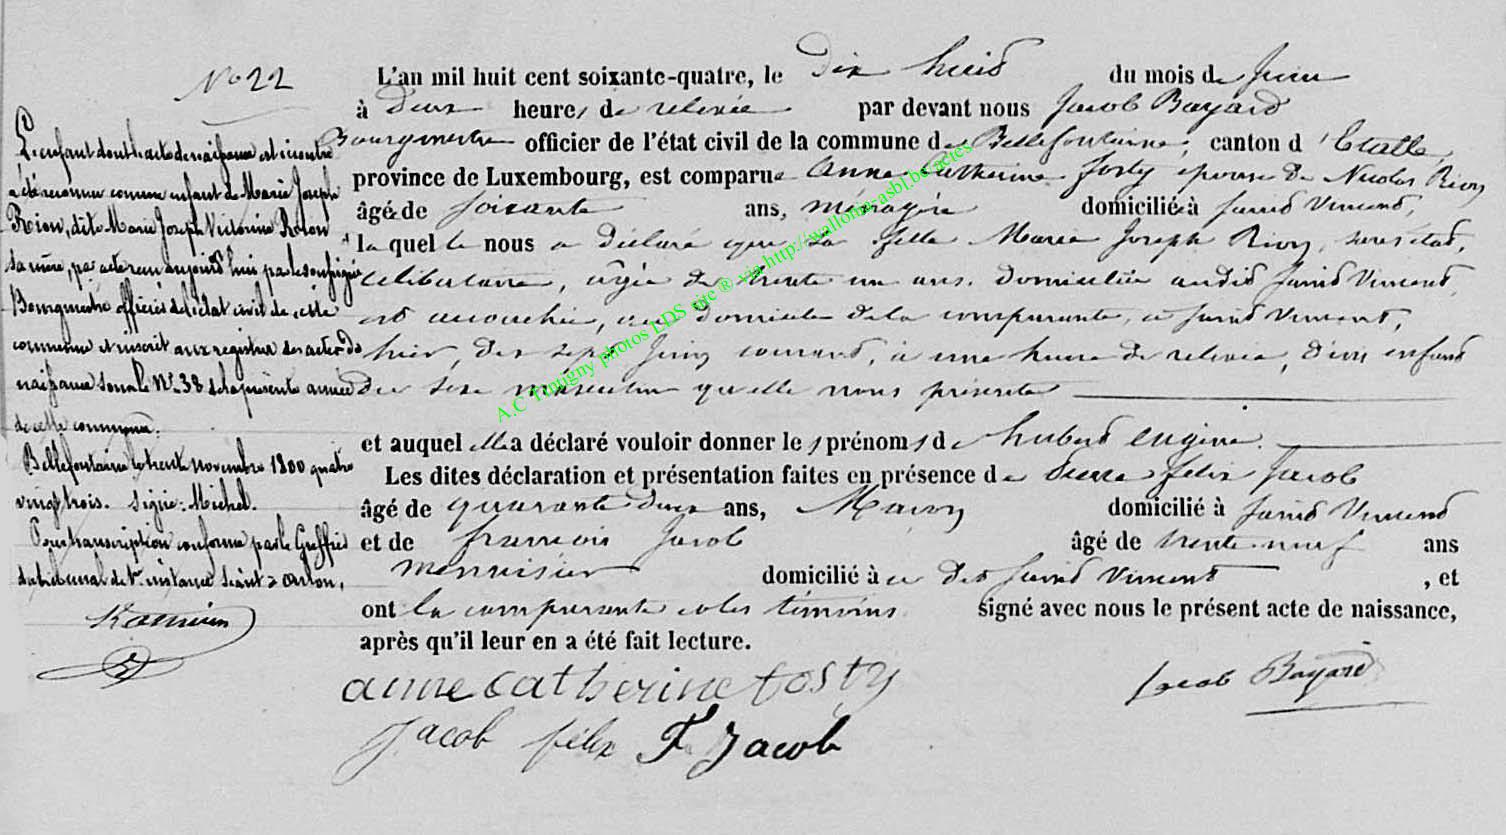 No 22
L'enfant dont l'acte de naissance est ci contre
a été reconnu comme enfant de Marie Joseph
Rion, dite Marie Joseph Victorine Roion
sa mère, par acte reçu aujourd'hui par le soussigné
Bourgmestre officier de l'état civil de cette
commune et inscrit aux registres des actes de
naissance sous le No 38 de la présente année
de cette commune.
Bellefontaine le trente novembre 1800 quatre
vingt trois. signé: Michel.
Pour transcription conforme par le Greffier
du tribunal de 1re instance séant à Arlon,
L'an mil huit cent soixante-quatre, le dix huid du mois de Juin
à deux heures de relevée par devant nous Jacob Bayard
Bourgmestre officier de l'état civil de la commune de Bellefontaine, canton d'Etalle,
province de Luxembourg, est comparue Anne Catherine Tosty épouse de Nicolas Rion
âgée de soixante ans, ménagère domiciliée à Saint Vincent,
laquelle nous a déclaré que sa fille Marie Joseph Rion, sans état,
célibataire, âgée de trente un ans, domiciliée audit Saint Vincent,
est accouchée, au domicile de la comparante, à Saint Vincent,
hier, dix sept Juin courant, à une heure de relevée, d'un enfant
du sexe masculin qu'elle nous présente
et auquel elle a déclaré vouloir donner les prénoms de hubert eugène.
Les dites déclaration et présentation faites en présence de Pierre félix Jacob
âgé de quarante deux ans, Maçon domicilié à Saint Vincent
et de francois Jacob âgé de trente neuf ans
menuisier domicilié à au dit Saint Vincent, et
ont la comparante et les témoins signé avec nous le présent acte de naissance,
après qu'il leur en a été fait lecture.
anne catherine tosty
Jacob Bayard
Jacob félix F. Jacob
A.C Tintigny photos EDS site ® via http://wallonia-asbl.be/actes